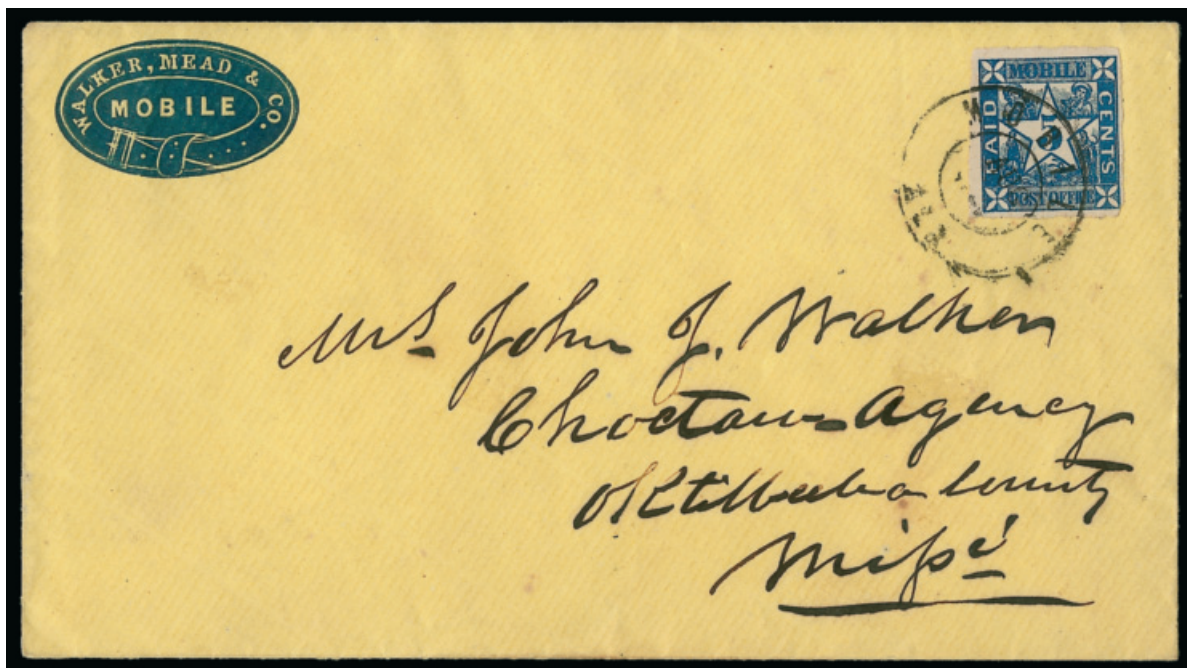 WALKER, MEAD & CO.
MOBILE
MOBILE
PAID
5
CENTS
POST OFFICE
MOBILE
Mrs John J. Walker
Choctaw Agency
Oktibbeha County
Missi